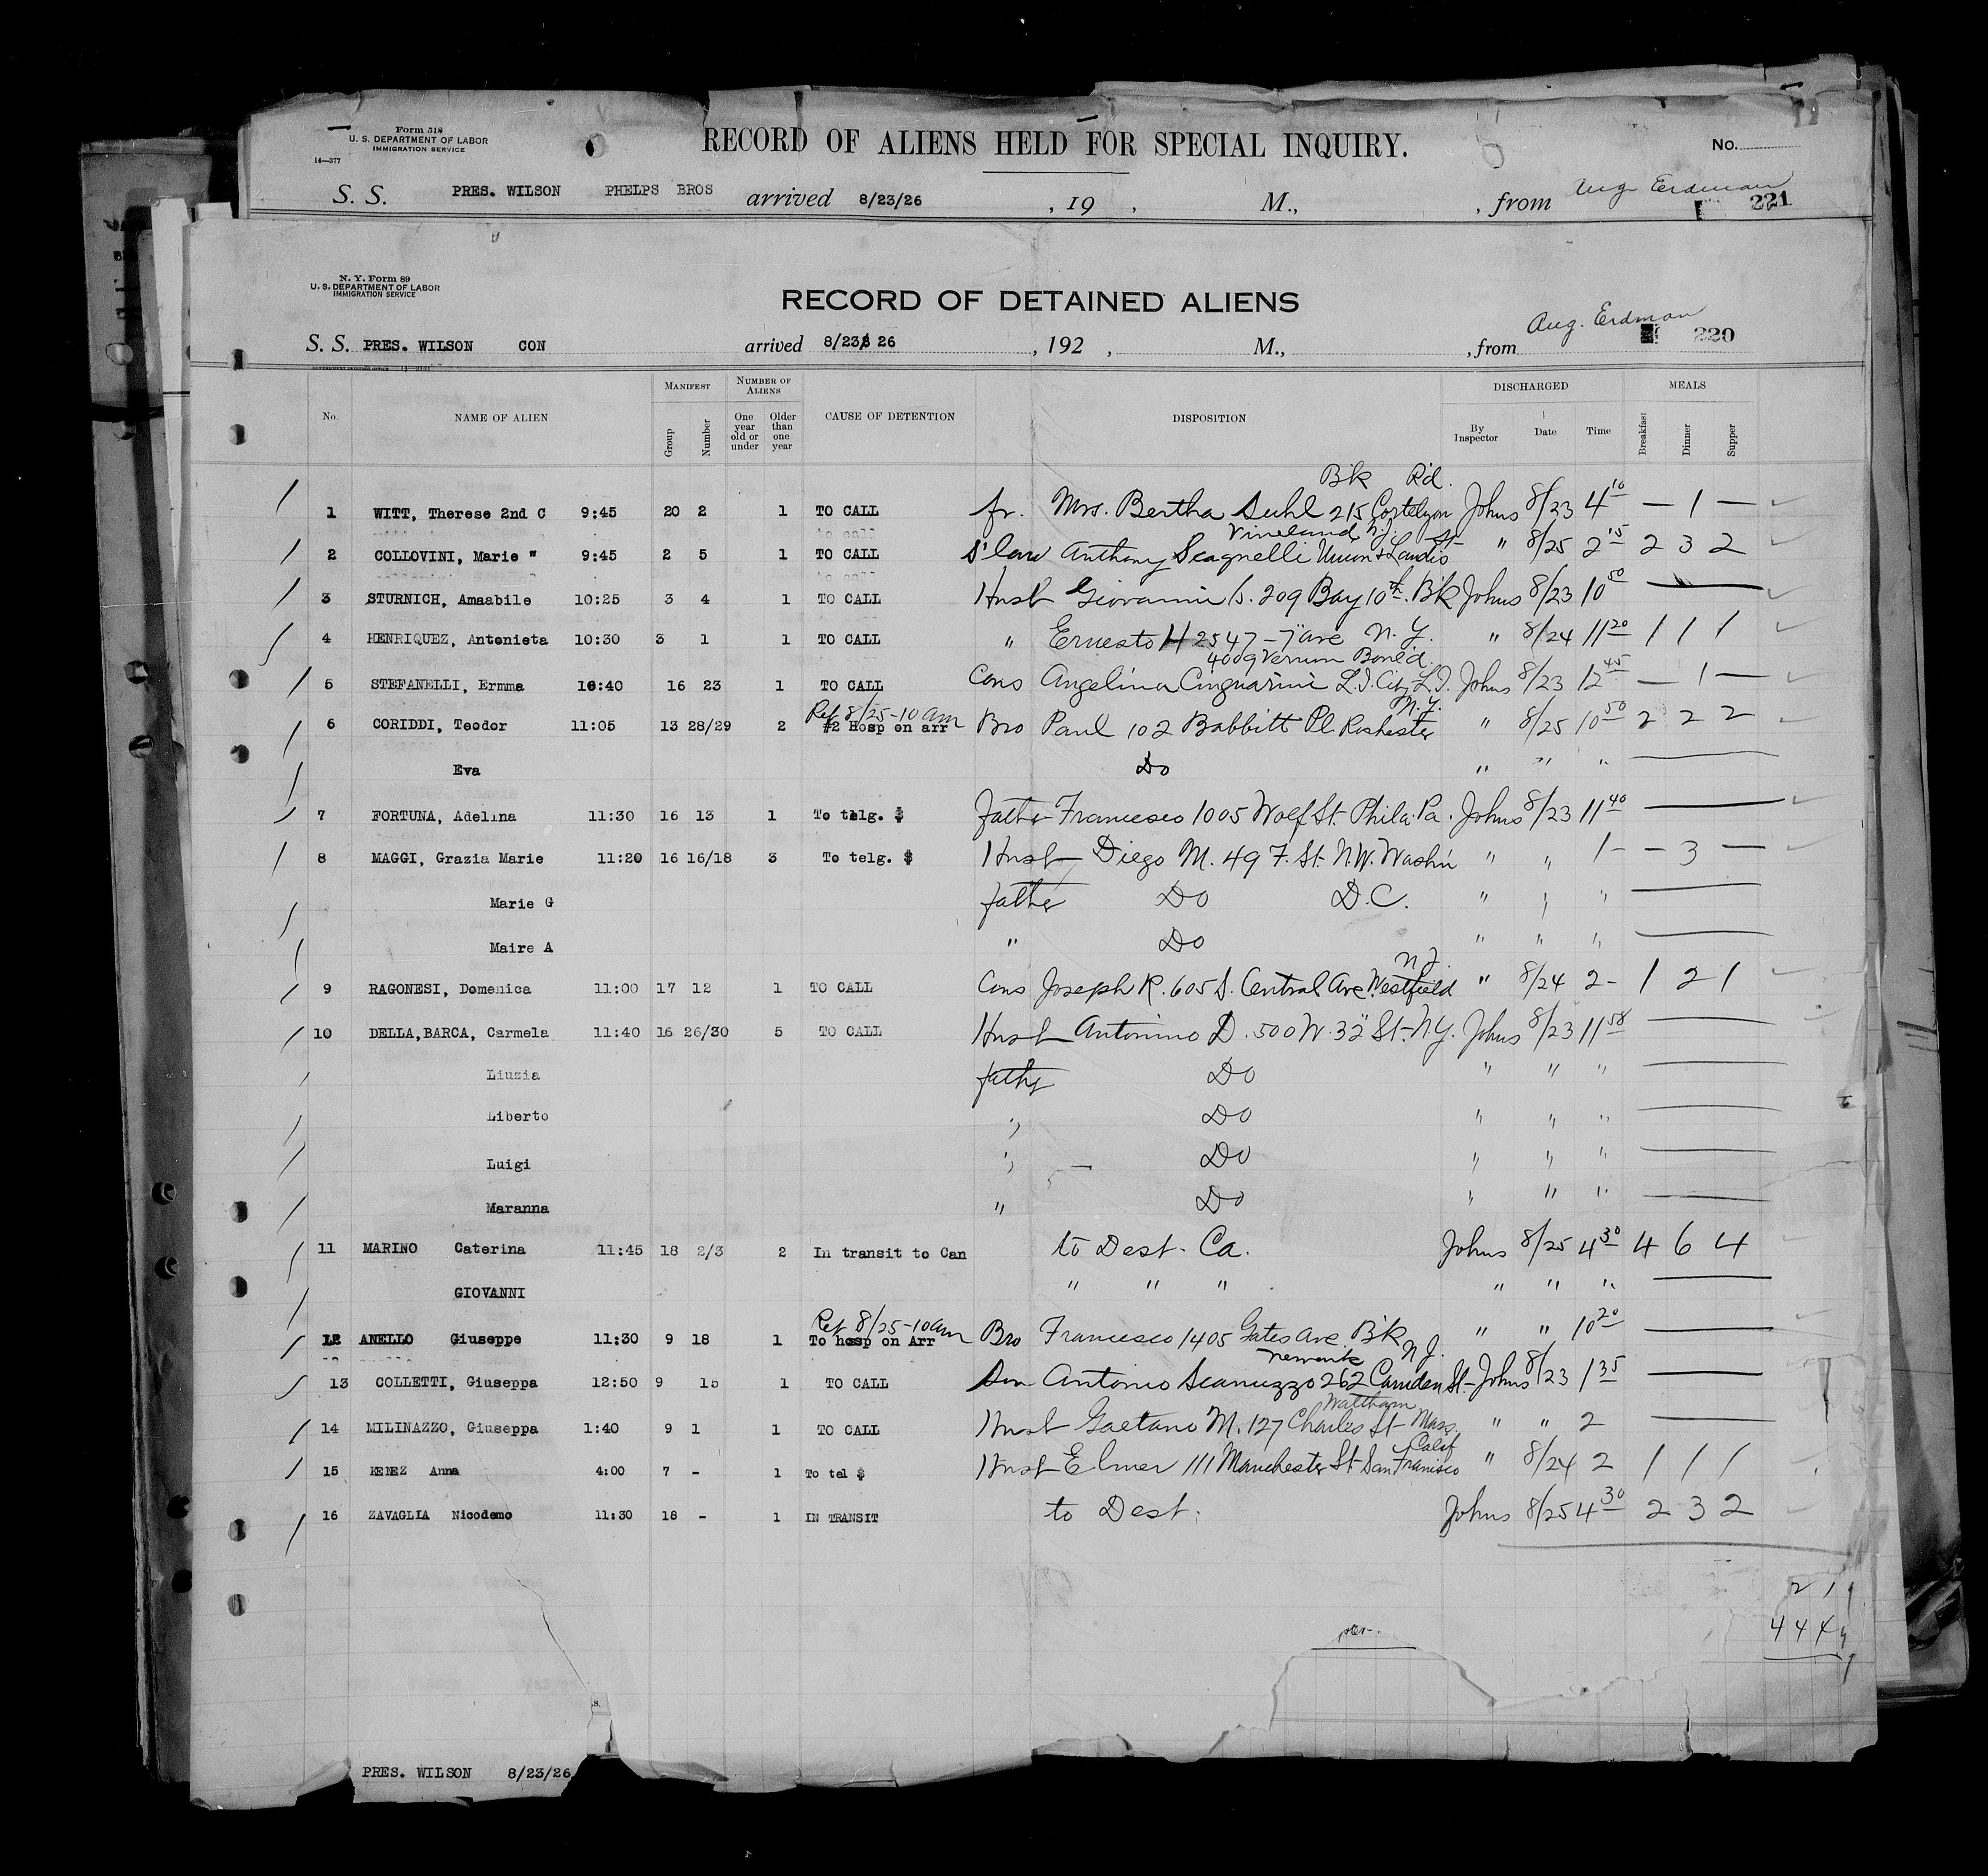 Form 518
U. S. DEPARTMENT OF LABOR
IMMIGRATION SERVICE
14—377
RECORD OF ALIENS HELD FOR SPECIAL INQUIRY.
No.
S. S. PRES. WILSON PHELPS BROS arrived 8/23/26 , 19 , M., , from Aug Erdman
221
N. Y. Form 89
U. S. DEPARTMENT OF LABOR
IMMIGRATION SERVICE
RECORD OF DETAINED ALIENS
S. S. PRES. WILSON CON arrived 8/23 26 , 192 , M., , from Aug. Erdman
220
No. NAME OF ALIEN MANIFEST Group Number NUMBER OF ALIENS One year old or under Older than one year CAUSE OF DETENTION DISPOSITION DISCHARGED By Inspector Date Time MEALS Breakfast Dinner Supper
Bk Rd.
1 WITT, Therese 2nd C 9:45 20 2 1 TO CALL fr. Mrs. Bertha Suhl 215 Cortelyon Johns 8/23 4 10 — 1 —
Vineland, N.J. St
2 COLLOVINI, Marie " 9:45 2 5 1 TO CALL s'law Anthony Scagnelli Union & Landis " 8/25 2 15 2 3 2
3 STURNICH, Amaabile 10:25 3 4 1 TO CALL Husb Giovanni S. 209 Bay 10th. Bk Johns 8/23 10 50
4 HENRIQUEZ, Antonieta 10:30 3 1 1 TO CALL " Ernesto H 2547 - 7" ave N.Y. " 8/24 11 20 1 1 1
4009 Vernun Boned.
5 STEFANELLI, Ermma 10:40 16 23 1 TO CALL Cons Angelina Cinquarini L.I. City L.I. Johns 8/23 12 45 — 1 —
Ret 8/25-10 am N.Y.
6 CORIDDI, Teodor 11:05 13 28/29 2 #2 Hosp on arr Bro Paul 102 Babbitt Pl Rochester " 8/25 10 50 2 2 2
Eva Do " " "
7 FORTUNA, Adelina 11:30 16 13 1 To telg. $ father Francesco 1005 Wolf St- Phila. Pa. Johns 8/23 11 40
8 MAGGI, Grazia Marie 11:20 16 16/18 3 To telg. $ Husb Diego M. 49 F. St- N.W. Washn " " 1- — 3 —
Marie G father Do D.C. " " "
Maire A " Do " " "
N.J.
9 RAGONESI, Domenica 11:00 17 12 1 TO CALL Cons Joseph R. 605 S. Central Ave. Westfield " 8/24 2- 1 2 1
10 DELLA,BARCA, Carmela 11:40 16 26/30 5 TO CALL Husb Antonino D. 500 W. 32" St- N.Y. Johns 8/23 11 58
Liuzia father Do " " "
Liberto " Do " " "
Luigi " Do " " "
Maranna " Do " " "
11 MARINO Caterina 11:45 18 2/3 2 In transit to Can to Dest. Ca. Johns 8/25 4 30 4 6 4
GIOVANNI " " " " " "
Ret 8/25-10am
12 ANELLO Giuseppe 11:30 9 18 1 To hosp on Arr Bro Francesco 1405 Gates Ave Bk " " 10 20
Newark N.J.
13 COLLETTI, Giuseppa 12:50 9 15 1 TO CALL Son Antonio Scanuzzo 262 Camden St- Johns 8/23 1 35
Waltham
14 MILINAZZO, Giuseppa 1:40 9 1 1 TO CALL Husb Gaetano M. 127 Charles St- Mass. " " 2
Calif
15 KENEZ Anna 4:00 7 - 1 To tel $ Husb Elmer 111 Manchester St- San Francisco " 8/24 2 1 1 1
16 ZAVAGLIA Nicodemo 11:30 18 - 1 IN TRANSIT to Dest. Johns 8/25 4 30 2 3 2
PRES. WILSON 8/23/26